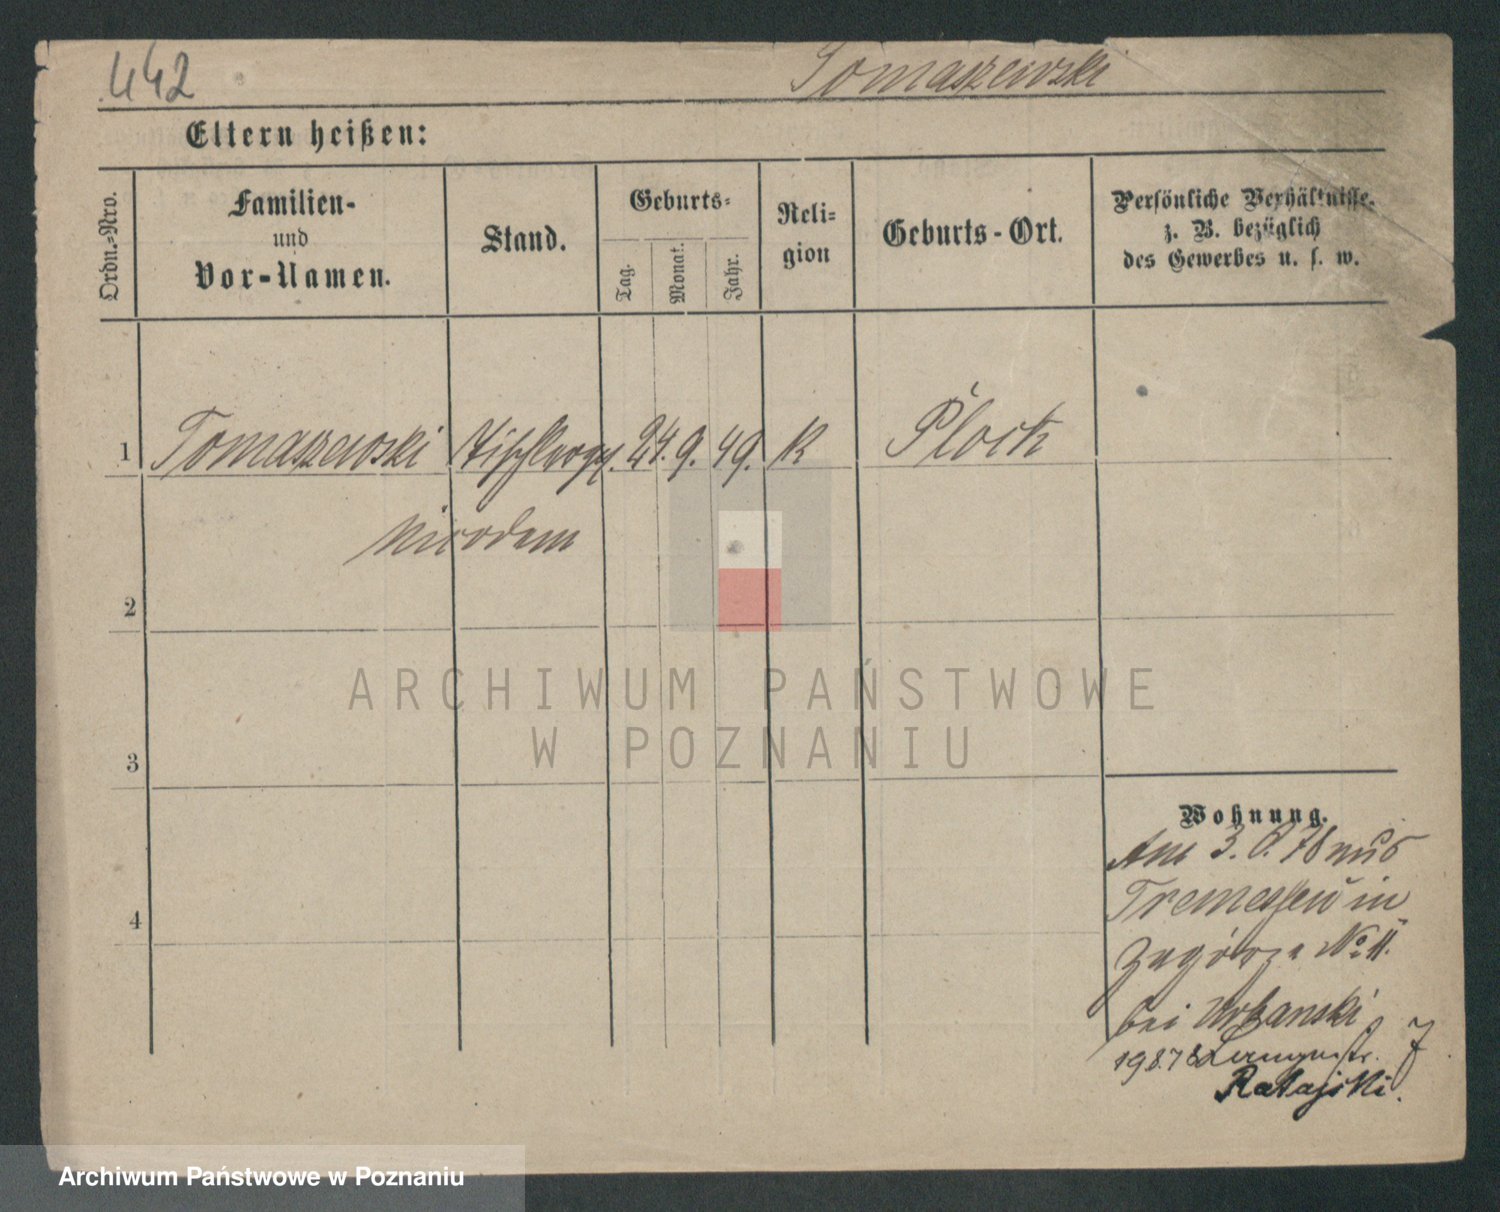 442
Tomaszewski
Eltern heißen:
Ordn.-Nro.
Familien-
und
Vor-Namen.
Stand.
Geburts-
Tag.
Monat.
Jahr.
Reli-
gion
Geburts-Ort.
Persönliche Verhältnisse.
z. B. bezüglich
des Gewerbes u. s. w.
1 Tomaszewski Tischlerges. 24. 9. 49. K Plock
Nicodem
2
3
4
Wohnung.
Am 3. 8. 78 aus
Tremessen in
Zagórze No 11.
bei Urbanski
19 8. 78
Ratajski.
ARCHIWUM PAŃSTWOWE
W POZNANIU
Archiwum Państwowe w Poznaniu